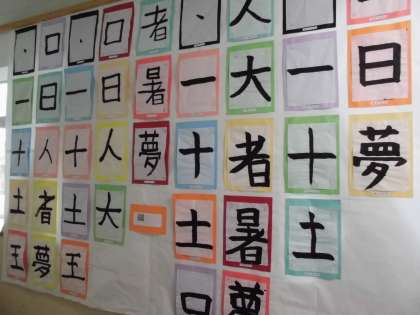 、一十土王
口日人者夢
、一十土王
口日人大
者暑夢
、一十土口
人大者暑夢
、一十土
日夢